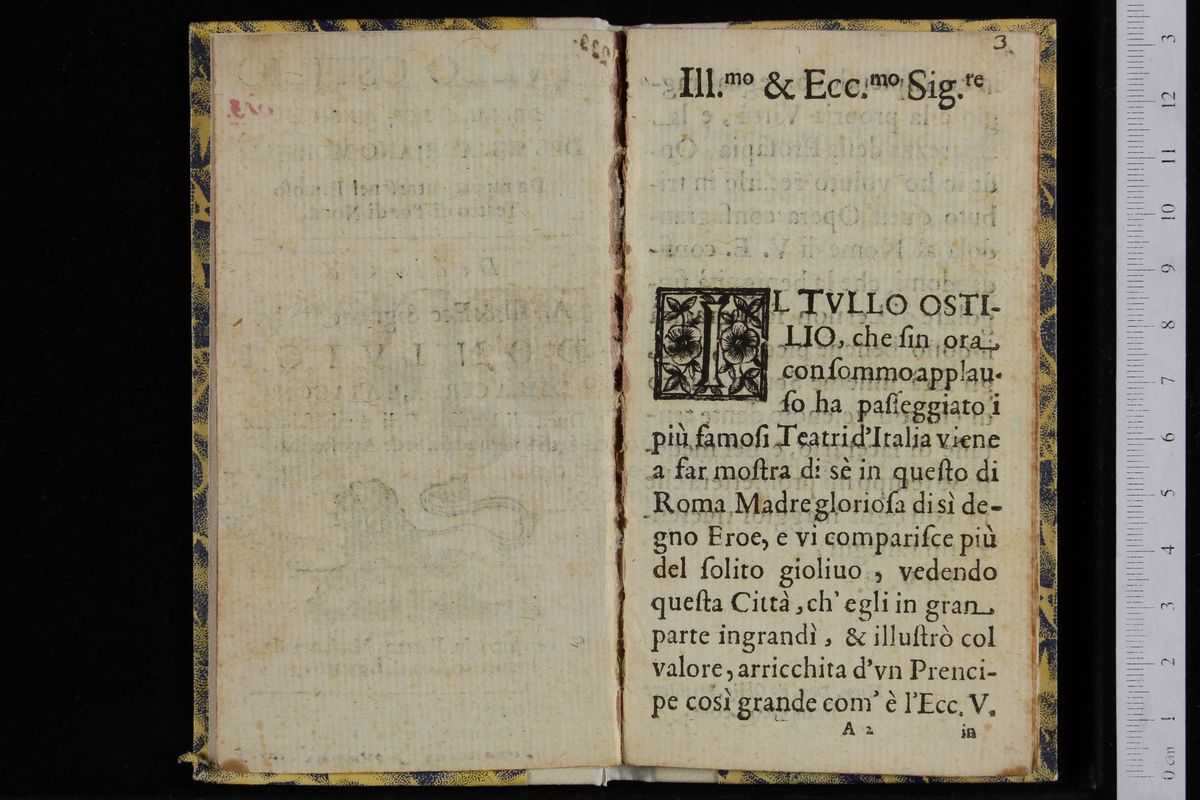 3
Ill.mo & Ecc.mo Sig.re
IL TVLLO OSTI-
LIO, che ſin ora
con ſommo applau-
ſo ha paſſeggiato i
più famoſi Teatri d'Italia viene
a far moſtra di sè in queſto di
Roma Madre glorioſa di sì de-
gno Eroe, e vi compariſce più
del ſolito gioliuo, vedendo
queſta Città, ch' egli in gran
parte ingrandì, & illuſtrò col
valore, arricchita d'vn Prenci-
pe così grande com' è l'Ecc. V.
A 2
in
0 cm 1 2 3 4 5 6 7 8 9 10 11 12 3